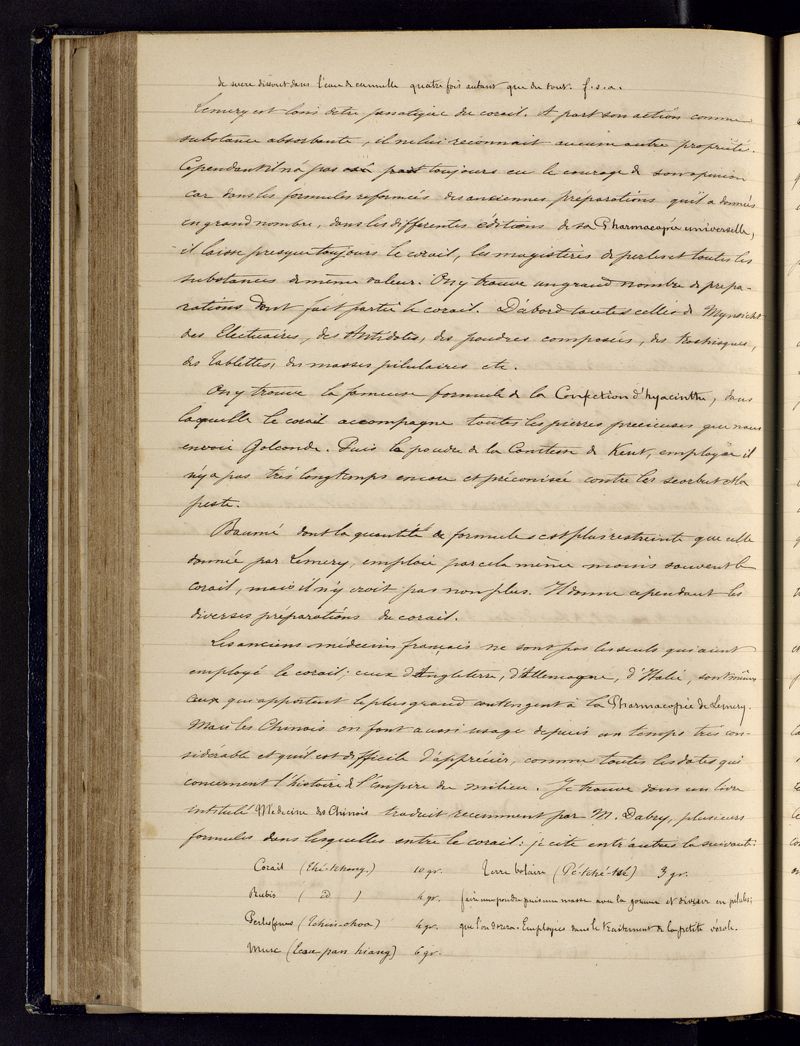 de sucre dissout dans l'eau de cannelle quatre fois autant que du tout. f.s.a.
Lemery est loin d'etre panegyrie du corail. A part son action comme
substance absorbante, il ne lui reconnait aucune autre propriété.
Cependant il n'a pas toujours eu le courage de son opinion
car dans les formules reformées des anciennes préparations qu'il a données
en grand nombre, dans les differentes éditions de sa Pharmacopée universelle,
il laisse presque toujours le corail, les magistères de perles et toutes les
substances de même valeur. On y trouve un grand nombre de prépa-
rations dont fait partie le corail. D'abord toutes celles de Mynsicht
des Electuaires, des Antidotes, des poudres composées, des trochisques,
des tablettes, des masses pilulaires etc.
On y trouve la fameuse formule de la Confection d'hyacinthe, dans
laquelle le corail accompagne toutes les pierres precieuses que nous
envoie Golconde. Puis la poudre de la Comtesse de Kent, employée il
n'y a pas très longtemps encore et préconisée contre le scorbut et la
peste.
Baumé dont la quantité de formules est plus restreinte que celle
donnée par Lemery, emploie par cela même moins souvent le
corail, mais il n'y croit pas non plus. Il donne cependant les
diverses préparations du corail.
Les anciens médecins français ne sont pas les seuls qui aient
employé le corail; ceux d'Angleterre, d'Allemagne, d'Italie, sont même
ceux qui apportent le plus grand contingent à la Pharmacopée de Lemery.
Mais les Chinois en font aussi usage depuis un temps très con-
sidérable et qu'il est difficile d'apprécier, comme toutes les dates qui
concernent l'histoire de l'empire du milieu. Je trouve dans un livre
intitulé Medecine des Chinois traduit recemment par M. Dabry, plusieurs
formules dans lesquelles entre le corail: je cite entr'autres la suivante:
Corail (Ché-tchang.) 10 gr. Terre bolaire (Pé-tché-) 3 gr.
Rubis ( id ) 4 gr. faire une poudre puis une masse avec la gomme et diviser en pilules;
Perles fines (Tchin-choo) 4 gr. que l'on dorera. Employées dans le traitement de la petite vérole.
Musc (Ecao-pan hiang) 6 gr.